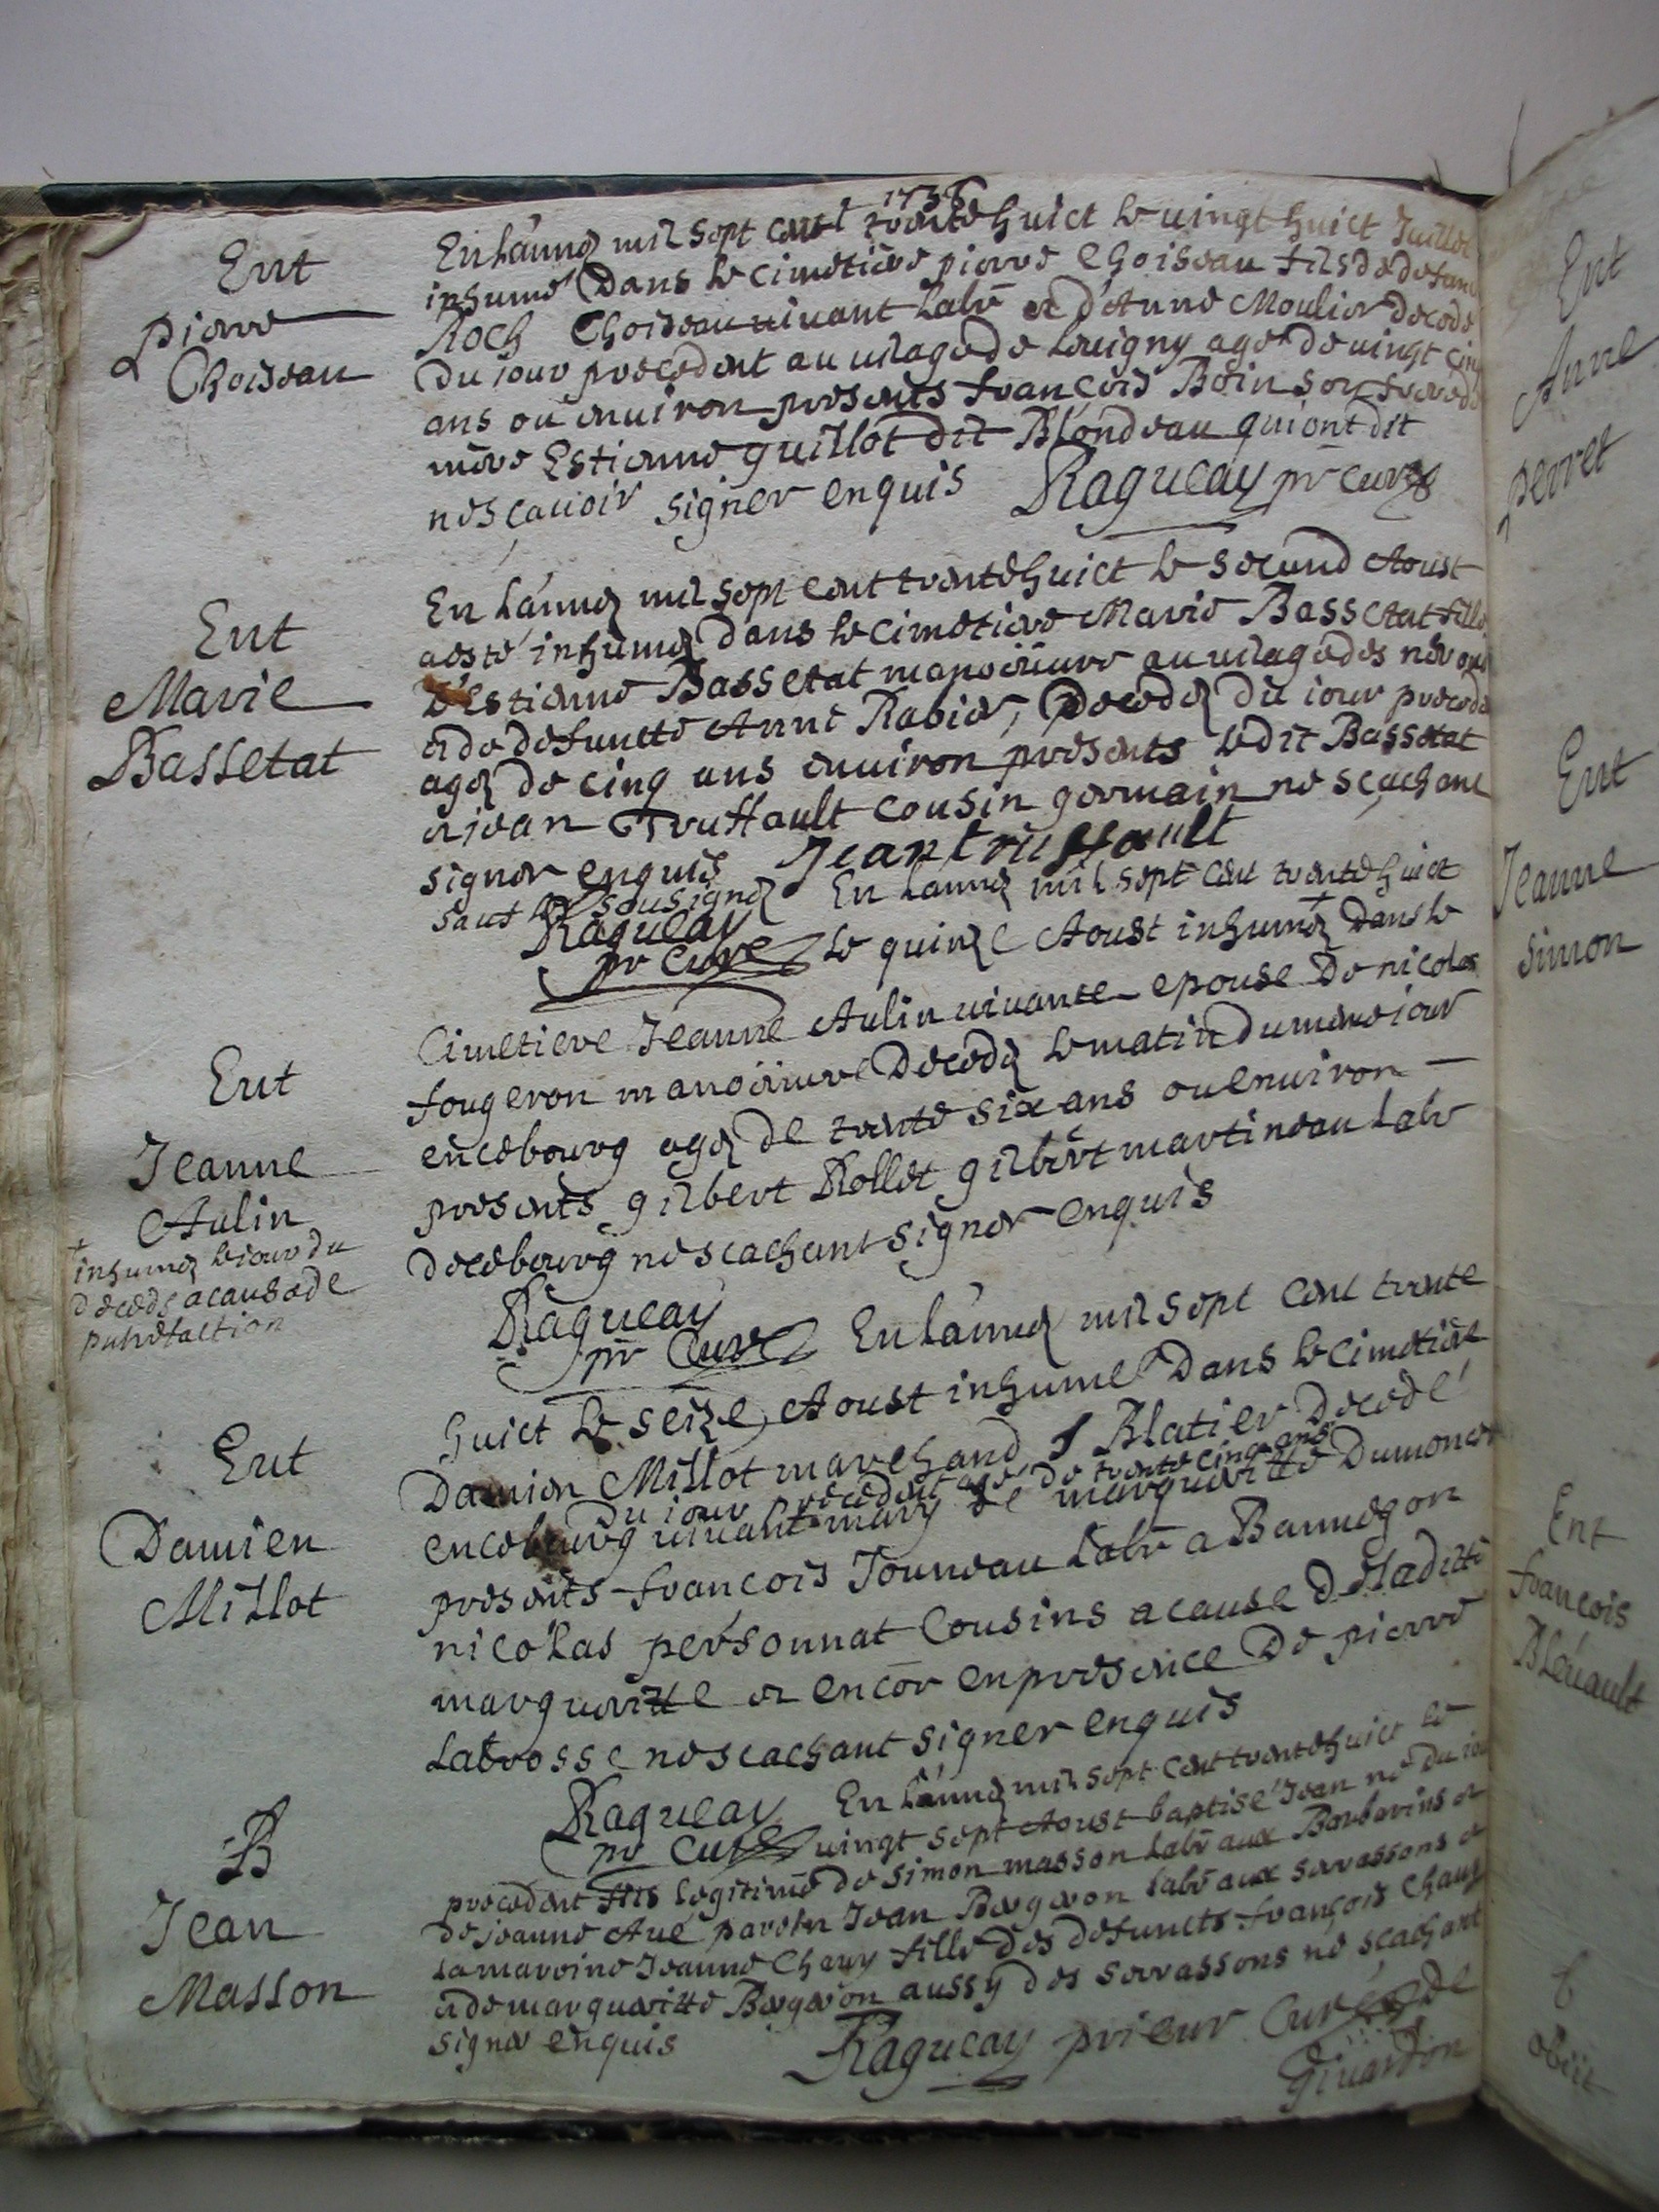 1738
Ent
pierre
Choiseau
En lánneé mil sept cent trente huict le uingt huict Juillet
inhumé Dans le cimetiere pierre Choiseau fils de defunt
Roch Choiseau uiuant labr et d'Anne Moulier decede
du iour precedent au uilage de Louigny agé de uingt cinq
ans ou enuiron presents françois Boin son frere de
mère Estienne guillot dit Blondeau qui ont dit
ne scauoir signer enquis Ragueau pr curé
Ent
Marie
Bassetat
En lánneé mil sept cent trente huict le second Aoust
a esté inhumeé dans le cimetiere Marie Bassetat fille
d'Estienne Bassetat manoeuure au uilage des
et de defuncte Anne Rabier, Decedeé du iour precede
ageé de cinq ans enuiron presents ledit Bassetat
et jean Truffault cousin germain ne scachant
signer enquis Jean truffault
sauf le sousigné
Ragueau
pr Curé
Ent
Jeanne
Aulin
+ inhumeé le iour du
deceds a cause de
putrefaction
En lánneé mil sept cent trente huict
le quinze Aoust inhumeé + Dans le
Cimetiere Jeanne Aulin uiuante epouse De nicolas
fougeron manoeuure Decedeé le matin du meme iour
en ce bourg ageé de trente six ans ou enuiron
presents gilbert Rollet gilbert martineau labr
de ce bourg ne scachant signer enquis
Ragueau
pr Curé
Ent
Damien
Millot
En lánneé mil sept cent trente
huict le seize Aoust inhumé Dans le cimetiere
Damien Millot marchand Blatier decedé
du iour precedent agé de trente cinq ans
en ce bourg uiuant mary de margueritte Dumonet
presents françois Jouneau labr a Bannegon
nicolas personnat Cousins a cause de ladite
margueritte et encor en presence De pierre
Labrosse ne scachant signer enquis
Ragueau
pr Curé
B
Jean
Masson
En lánneé mil sept cent trente huict le
uingt sept Aoust baptisé Jean né du iou
precedent fils legitime de Simon masson labr aux Barbarins et
de jeanne Aué parein Jean Bergeron labr aux serassons et
la maroine Jeanne Chery fille des defuncts françois Chery
et de marguerite Bergeron aussy des serrassons ne scachant
signer enquis
Ragueau prieur Curé de
Giuardon
Ent
Anne
perret
Ent
Jeanne
Simon
Ent
françois
Bleuault
obiit